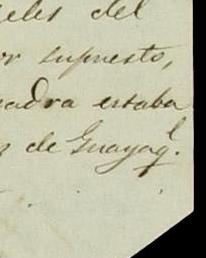 eles del
or supuesto,
uadra estaba
de Guayaq.l